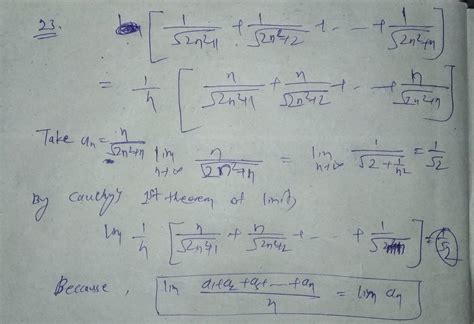 23. [ 1/√2n²+1 + 1/√2n²+2 + - - + 1/√2n²+n ]
= 1/n [ n/√2n²+1 + n/√2n²+2 + - - + n/√2n²+n ]
Take aₙ = n/√2n²+n lim n→∞ n/√2n²+n = lim n→∞ 1/√2+1/n² = 1/√2
By Cauchy's 1st theorem of limits
Lim 1/n [ n/√2n²+1 + n/√2n²+2 + - - + 1/√2n²+n ] =
Because, lim a₁+a₂+a₃+---+aₙ/n = lim aₙ